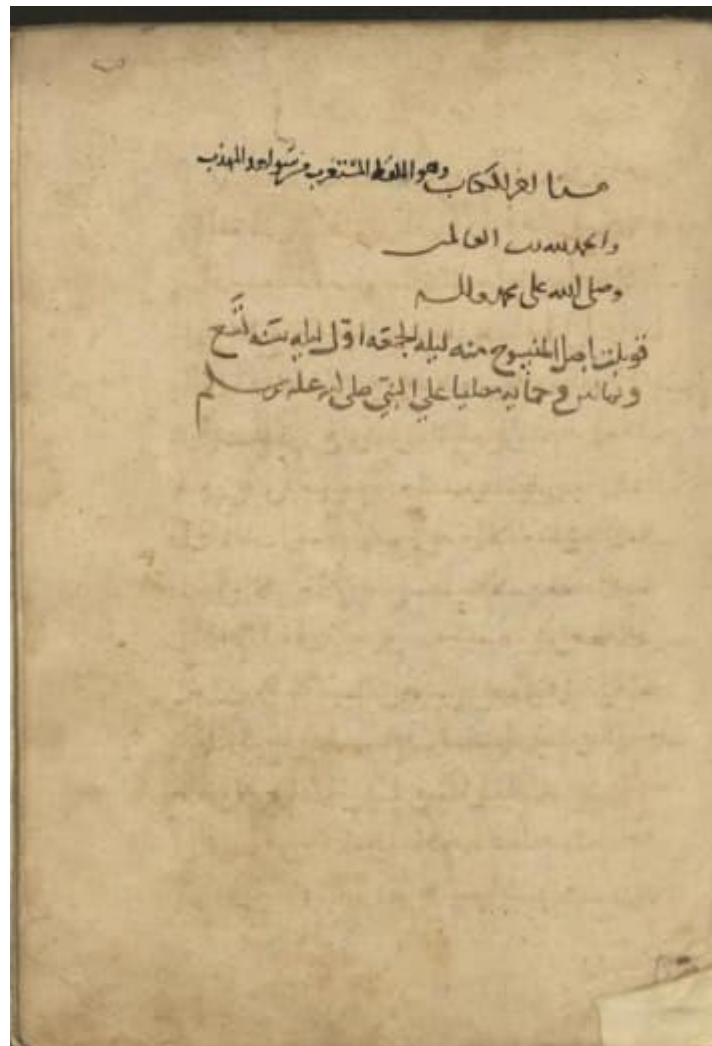 هذا اخر الكتاب وهو اللفظ المستغرب من شواهد المهذب
والحمد لله رب العالمين
وصلى الله على محمد واله
قوبلت باصل المنسوخ منه ليله الجمعه اول ليله سنه تسع
وثمانين وحمايه مصليا على النبي صلى الله عليه وسلم